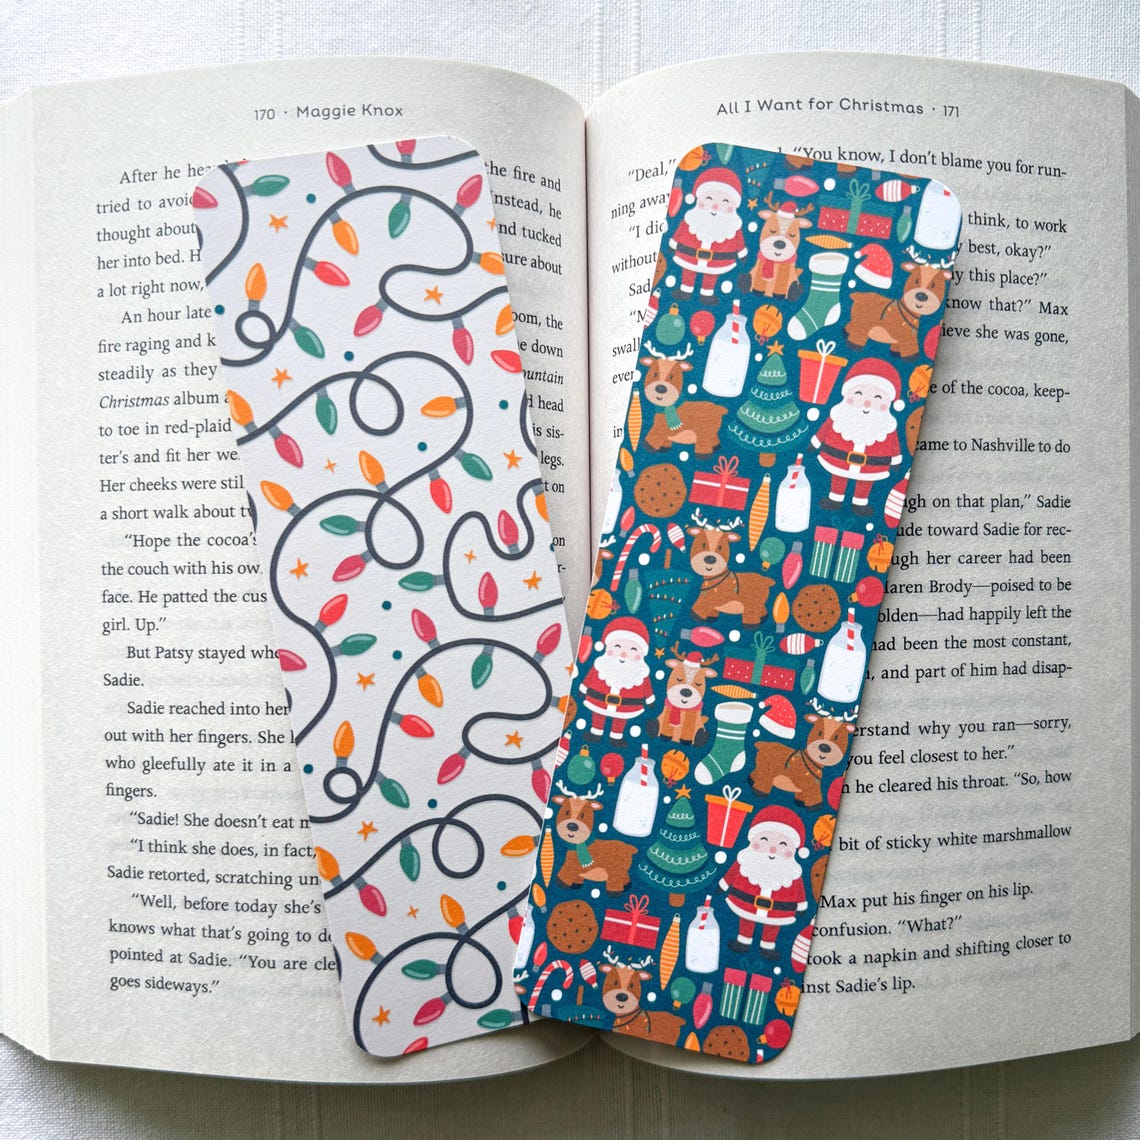 170 · Maggie Knox
After he
tried to avoid
thought about
her into bed. H
a lot right now,
An hour late
fire raging and k
steadily as they
Christmas album
to toe in red-plaid
ter's and fit her we
Her cheeks were stil
a short walk about
"Hope the cocoa's
the couch with his ow
face. He patted the cus
girl. Up."
But Patsy stayed whe
Sadie.
Sadie reached into her
out with her fingers. She
who gleefully ate it in a
fingers.
"Sadie! She doesn't eat
"I think she does, in fact,
Sadie retorted, scratching un
"Well, before today she's
knows what that's going to d
pointed at Sadie. "You are cle
goes sideways."
he fire and
nstead, he
nd tucked
ure about
oom, the
e down
ountain
head
is sis-
legs.
t on
on
r-
All I Want for Christmas · 171
"Deal," "You know, I don't blame you for run-
ning away
"I did think, to work
without best, okay?"
Sad y this place?"
"M know that?" Max
swall ieve she was gone,
ever
of the cocoa, keep-
in
came to Nashville to do
ugh on that plan," Sadie
ude toward Sadie for rec-
ugh her career had been
laren Brody—poised to be
olden—had happily left the
had been the most constant,
, and part of him had disap-
erstand why you ran—sorry,
you feel closest to her."
he cleared his throat. "So, how
bit of sticky white marshmallow
Max put his finger on his lip.
confusion. "What?"
took a napkin and shifting closer to
inst Sadie's lip.